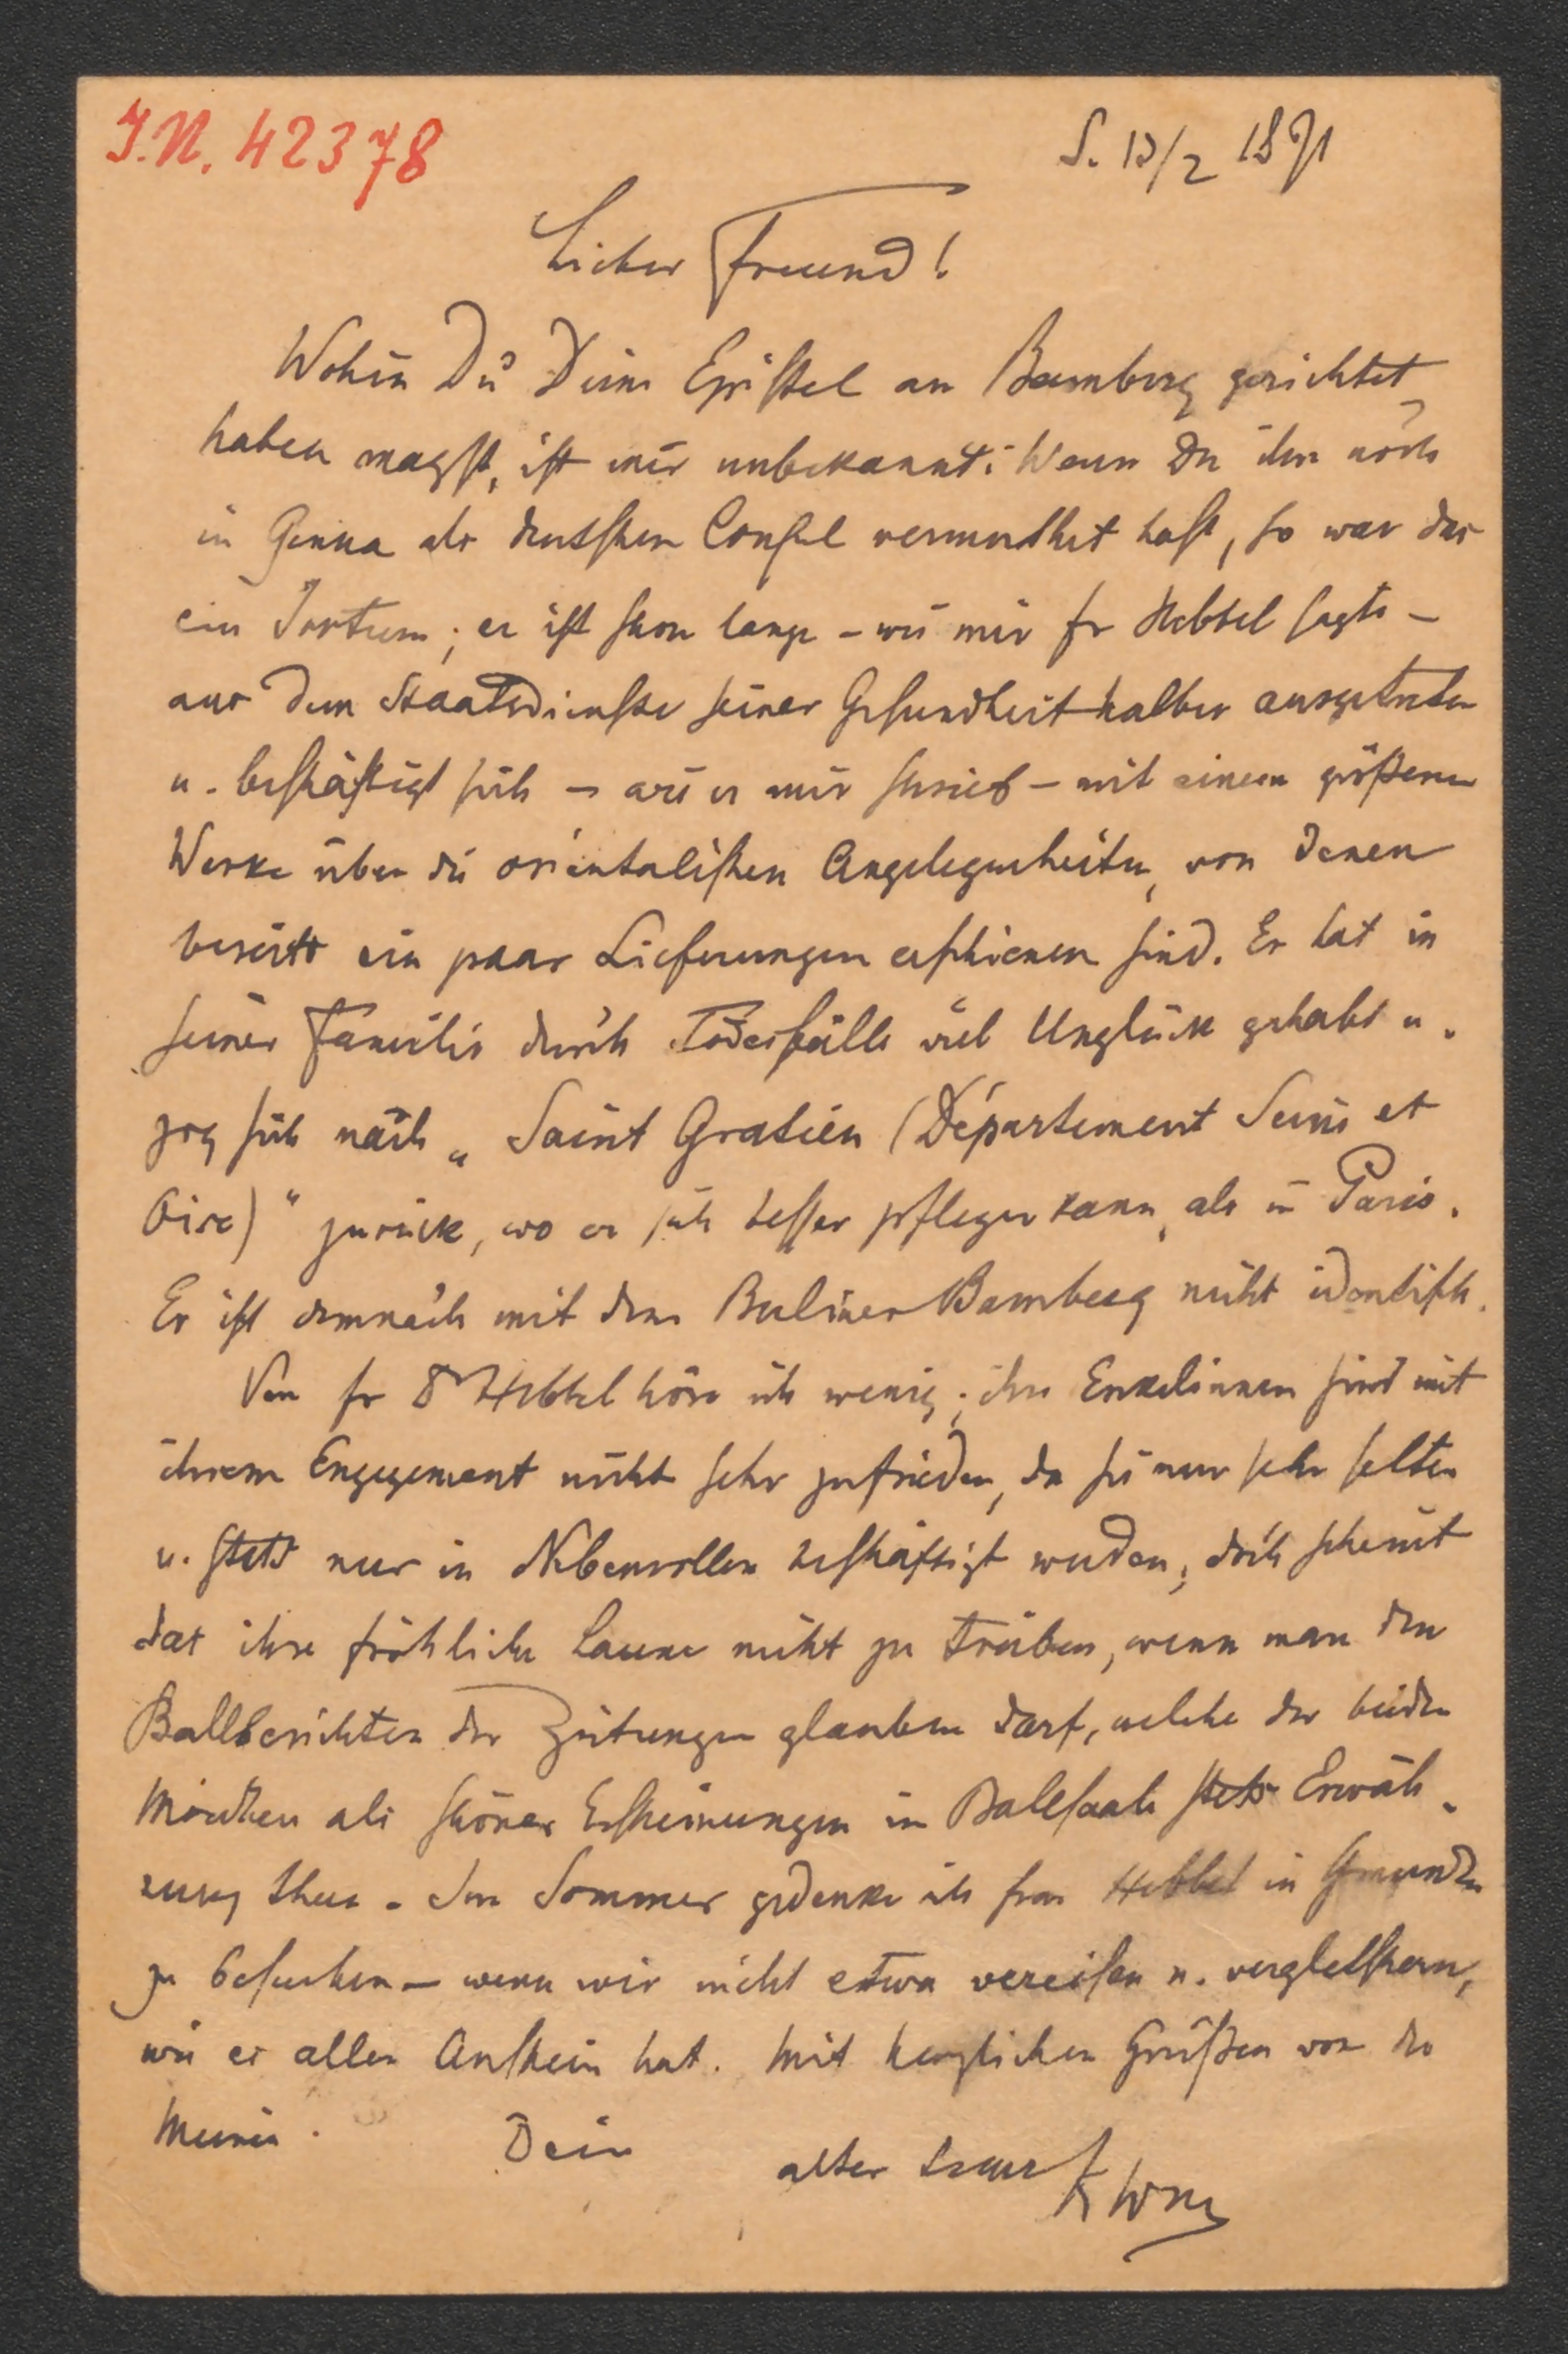 I.N. 42378
S. 13/2 1891
Lieber Freund!
Wohin Du Deine Epistel an Bamberg gerichtet
haben magst, ist mir unbekannt: Wenn Du ihn noch
in Genua als deutschen Consul vermuthet hast, so war das
ein Irrtum; er ist schon lange – wie mir Fr Hebbel sagte –
aus dem Staatsdienste seiner Gesundheit halber ausgetreten
u. beschäftigt sich – wie er mir schrieb – mit einem größeren
Werke über die orientalischen Angelegenheiten, von denen
bereits ein paar Lieferungen erschienen sind. Er hat in
seiner Familie durch Todesfälle viel Unglück gehabt u.
zog sich nach „Saint Gratien (Département Seine et
Oise)“ zurück, wo er sich besser pflegen kann, als in Paris.
Er ist demnach mit dem Berliner Bamberg nicht identisch.
Von Fr Hebbel höre ich wenig; ihre Enkelinnen sind mit
ihrem Engagement nicht sehr zufrieden, da sie nur sehr selten
u. stets nur in Nebenrollen beschäftigt werden; doch scheint
das ihre fröhliche Laune nicht zu trüben, wenn man den
Ballberichten der Zeitungen glauben darf, welche der beiden
Mädchen als schöner Erscheinungen im Ballsaale stets Erwäh-
nung thun. Im Sommer gedenke ich Frau Hebbel in Gmunden
zu besuchen – wenn wir nicht etwa vereisen u. vergletschern,
wie es allen Anschein hat. Mit herzlichen Grüßen von den
Meinen. Dein
alter treuer